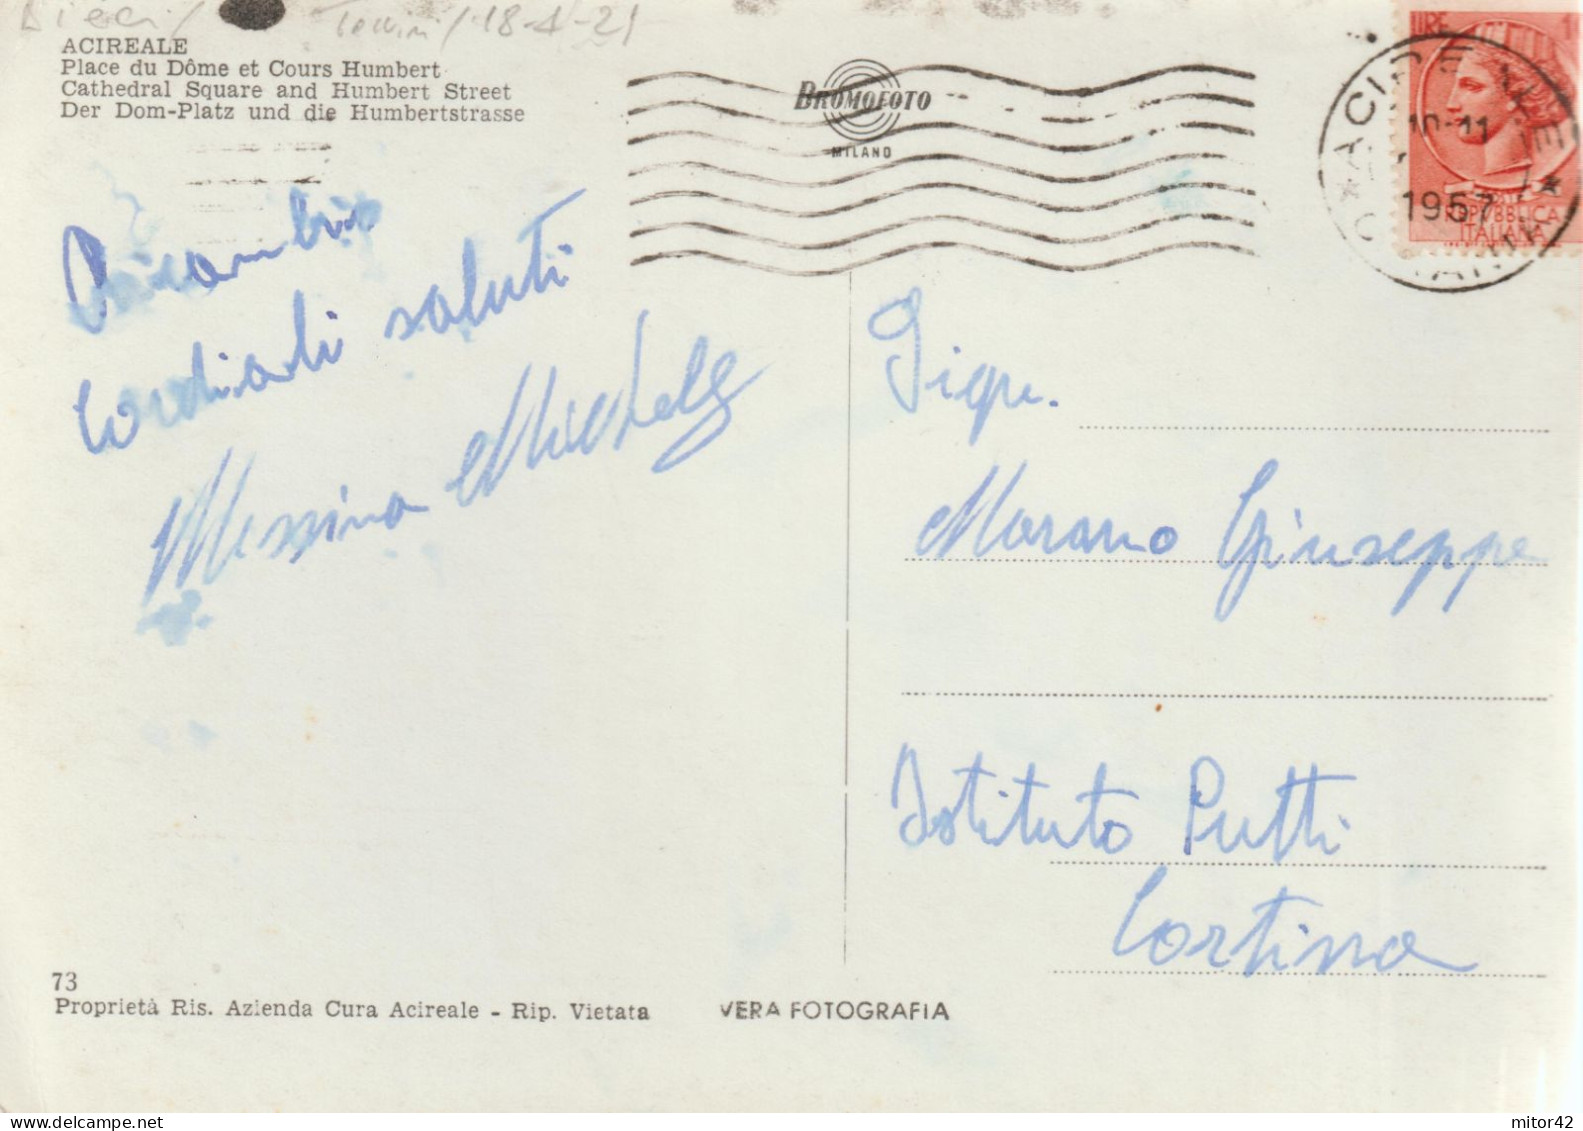 18-4-21
ACIREALE
Place du Dôme et Cours Humbert
Cathedral Square and Humbert Street
Der Dom-Platz und die Humbertstrasse
BROMOFOTO
MILANO
LIRE
ACIREALE
10-11
1957
REPVBBLICA
ITALIANA
Ricambio
Cordiali saluti
Messina Michele
Sigr.
Marano Giuseppe
Istituto Putti
Cortina
73
Proprietà Ris. Azienda Cura Acireale - Rip. Vietata
VERA FOTOGRAFIA
mitor42